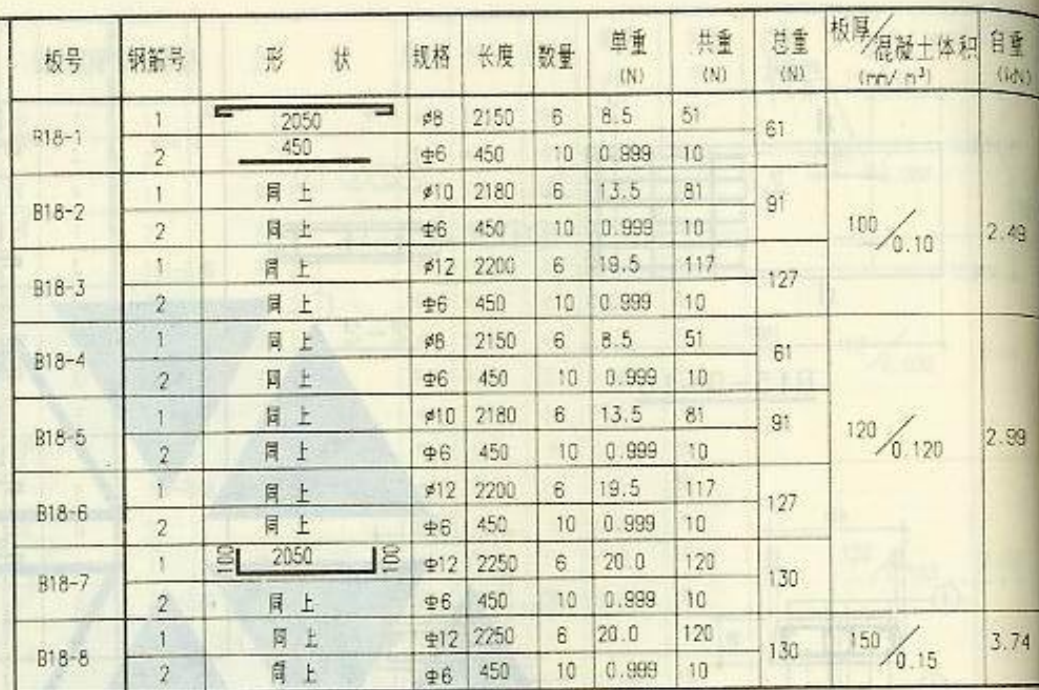 板号 钢筋号 形 状 规格 长度 数量 单重 (N) 共重 (N) 总重 (N) 板厚/混凝土体积 (mm/m³) 自重 (kN)
B18-1 1 2050 φ8 2150 6 8.5 51 61
2 450 Φ6 450 10 0.999 10
B18-2 1 同上 φ10 2180 6 13.5 81 91 100/0.10 2.49
2 同上 Φ6 450 10 0.999 10
B18-3 1 同上 φ12 2200 6 19.5 117 127
2 同上 Φ6 450 10 0.999 10
B18-4 1 同上 φ8 2150 6 8.5 51 61
2 同上 Φ6 450 10 0.999 10
B18-5 1 同上 φ10 2180 6 13.5 81 91 120/0.120 2.99
2 同上 Φ6 450 10 0.999 10
B18-6 1 同上 φ12 2200 6 19.5 117 127
2 同上 Φ6 450 10 0.999 10
B18-7 1 100 2050 100 Φ12 2250 6 20.0 120 130
2 同上 Φ6 450 10 0.999 10
B18-8 1 同上 Φ12 2250 6 20.0 120 130 150/0.15 3.74
2 同上 Φ6 450 10 0.999 10